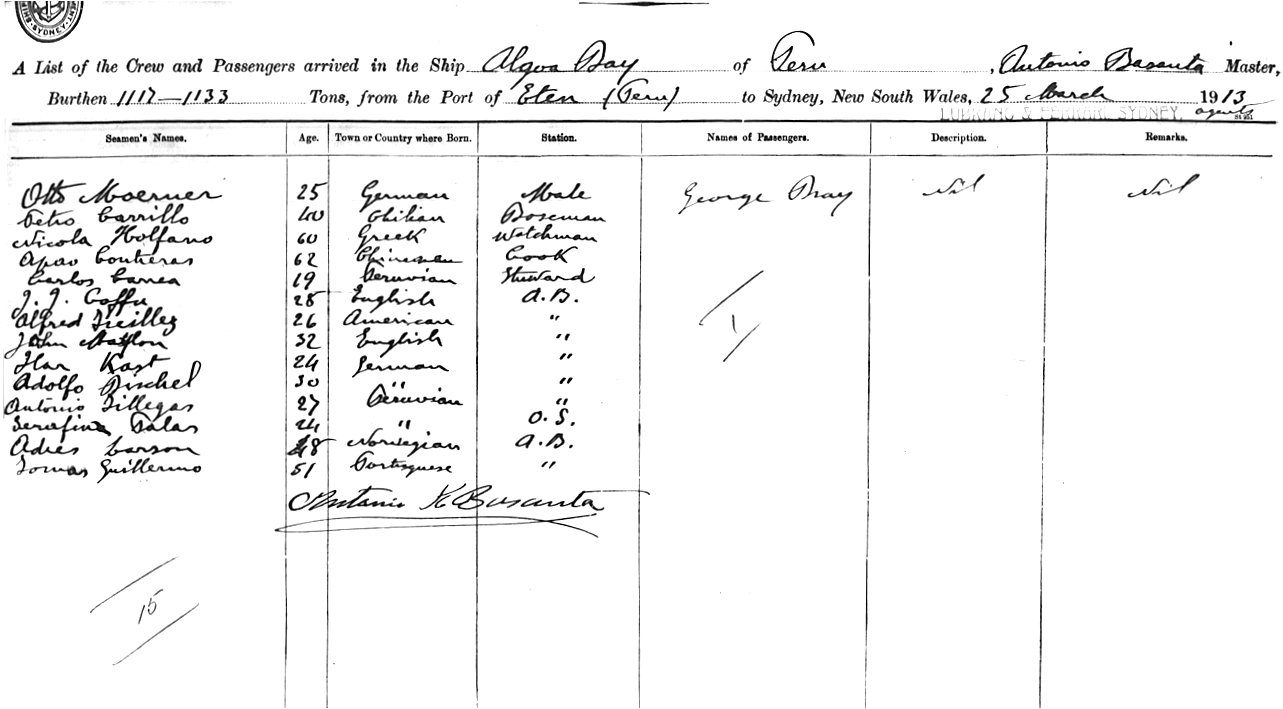 SYDNEY
A List of the Crew and Passengers arrived in the Ship Algoa Bay of Peru, Antonio Basanta Master,
Burthen 1117—1133 Tons, from the Port of Eten (Peru) to Sydney, New South Wales, 25 March 1913
SYDNEY. agents
Seamen's Names. Age. Town or Country where Born. Station. Names of Passengers. Description. Remarks.
Otto Moerner 25 German Mate George Bray Nil Nil
Petro Carrillo 40 Chilian Boseman
Nicola Holfano 60 Greek Watchman
Apao Contreras 62 Chineman Cook
Carlos Canea 19 Peruvian Stuward
J. J. Coffu 28 English A.B.
Alfred 26 American "
John 32 English "
Kast 24 German "
Adolfo Pischel 30 " "
Antonio Villegas 27 Peruvian "
Serafino Salas 24 " O.S.
Adres Carson 48 Norwegian A.B.
Tomas Guillermo 51 Portuguese "
Antonio K Basanta
1
15